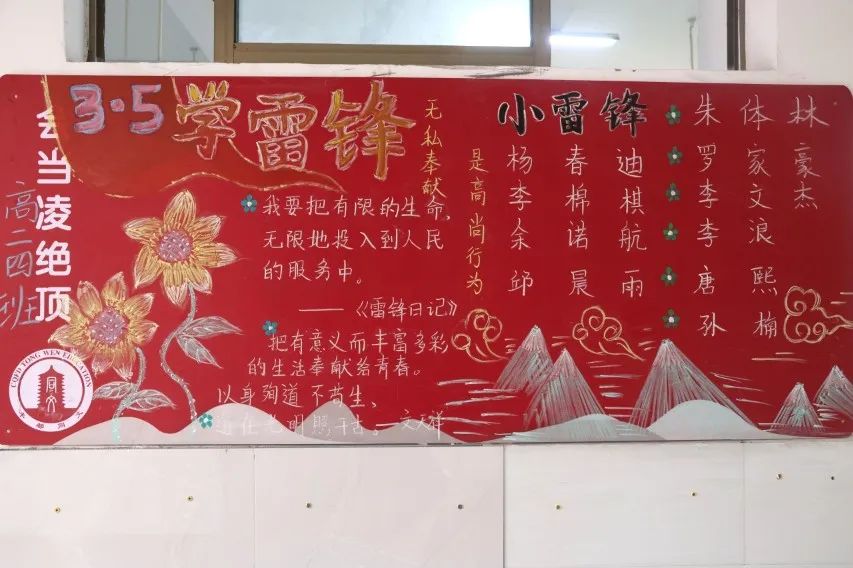 会当凌绝顶
高二四班
3·5学雷锋
无私奉献
是高尚行为
我要把有限的生命,
无限地投入到人民
的服务中。
——《雷锋日记》
把有意义而丰富多彩
的生活奉献给青春。
以身殉道不苟生、
道在光明照千古。—文天祥
小雷锋
杨春迪
李棉棋
余诺航
邱晨雨
朱体林
罗家豪
李文杰
李浪
唐熙
孙楠
CQFD TONG WEN EDUCATION
同文
丰都同文